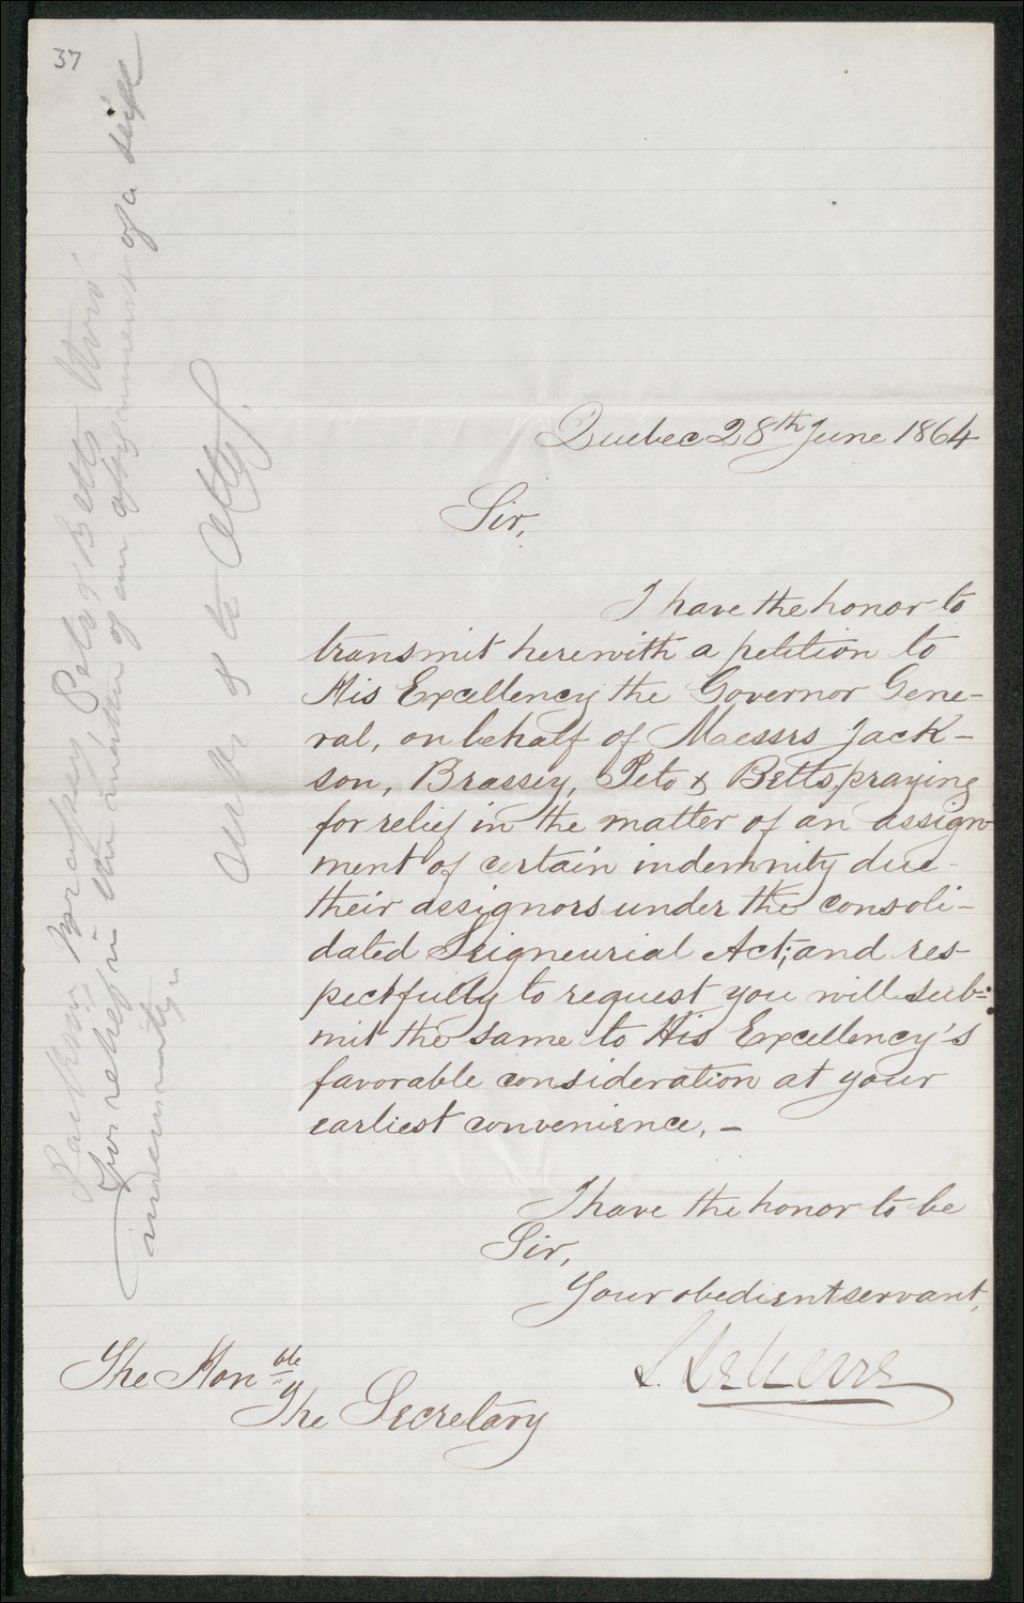 37
Quebec 28th June 1864
Sir,
I have the honor to
transmit herewith a petition to
His Excellency the Governor Gene-
ral, on behalf of Messrs Jack-
son, Brassey, Peto & Betts, praying
for relief in the matter of an assign-
ment of certain indemnity due
their assignors under the consoli-
dated Seigneurial Act; and res-
pectfully to request you will sub-
mit the same to His Excellency's
favorable consideration at your
earliest convenience. -
I have the honor to be
Sir,
Your obedient servant,
The Honble
The Secretary
Jackson, Brassey, Peto & Betts
For relief in the matter of an assignment of a seigl
indemnity